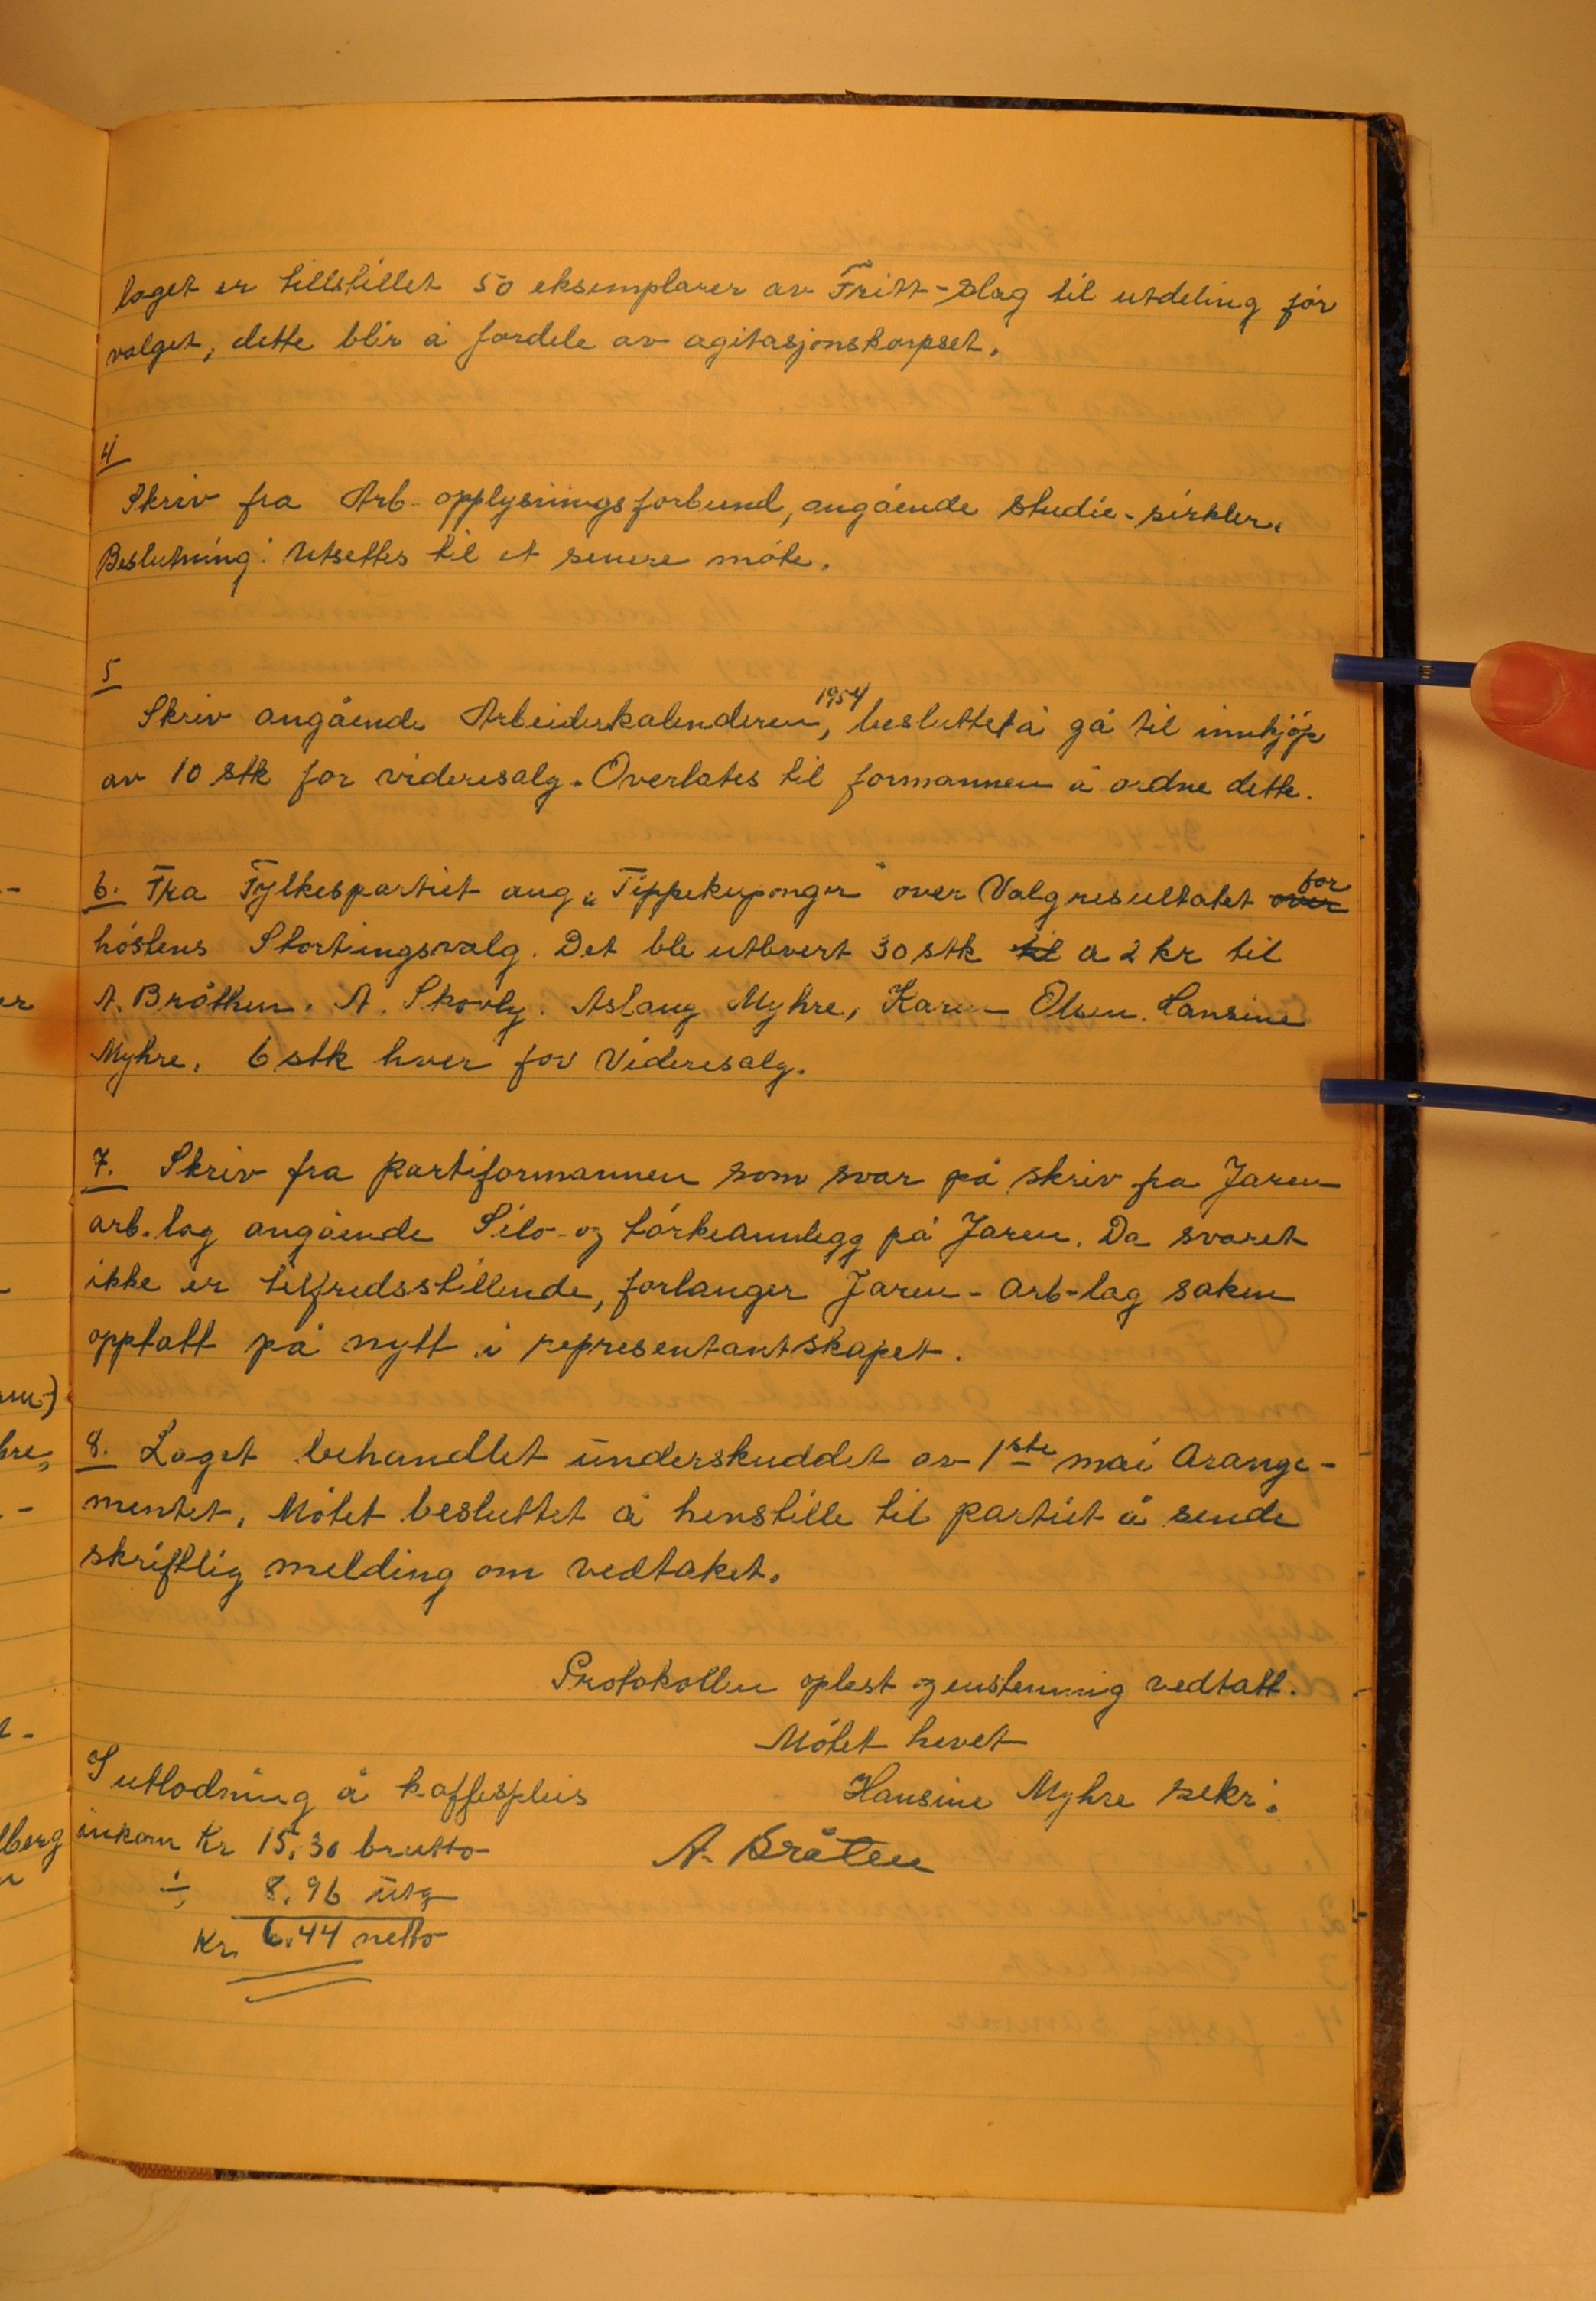 laget er tillstillet 50 eksemplarer av Fritt-Slag til utdeling før
valget, dette blir å fordele av agitasjonskorpset.
4
Skriv fra Arb-opplysningsforbund, angående studie-sirkler.
Beslutning: Utsettes til et senere møte.
5
Skriv angående Arbeiderkalenderen 1954, besluttet å gå til innkjøp
av 10 stk for videresalg. Overlates til formannen å ordne dette.
6. Fra Fylkespartiet ang. "Tippekuponger" over Valgresultatet over for
høstens Stortingsvalg. Det ble utlevert 30 stk til a 2 kr til
A. Bråthen. A. Skovly. Aslaug Myhre, Karen Olsen. Hansine
Myhre. 6 stk hver for Videresalg.
7. Skriv fra partiformannen som svar på skriv fra Jaren
arb.lag angående Silo- og tørkeannlegg på Jaren. Da svaret
ikke er tilfredsstillende, forlanger Jaren-Arb-lag saken
opptatt på nytt i representantskapet.
8. Laget behandlet underskuddet av 1ste mai Arange-
mentet. Møtet besluttet å henstille til partiet å sende
skriftlig melding om vedtaket.
Protokollen oplest og enstemmig vedtatt.
Møtet hevet
Hansine Myhre sekr.
A. Bråten
I utlodning å kaffespleis
inkom Kr 15,30 brutto
÷ 8,96 utg
Kr. 6.44 netto